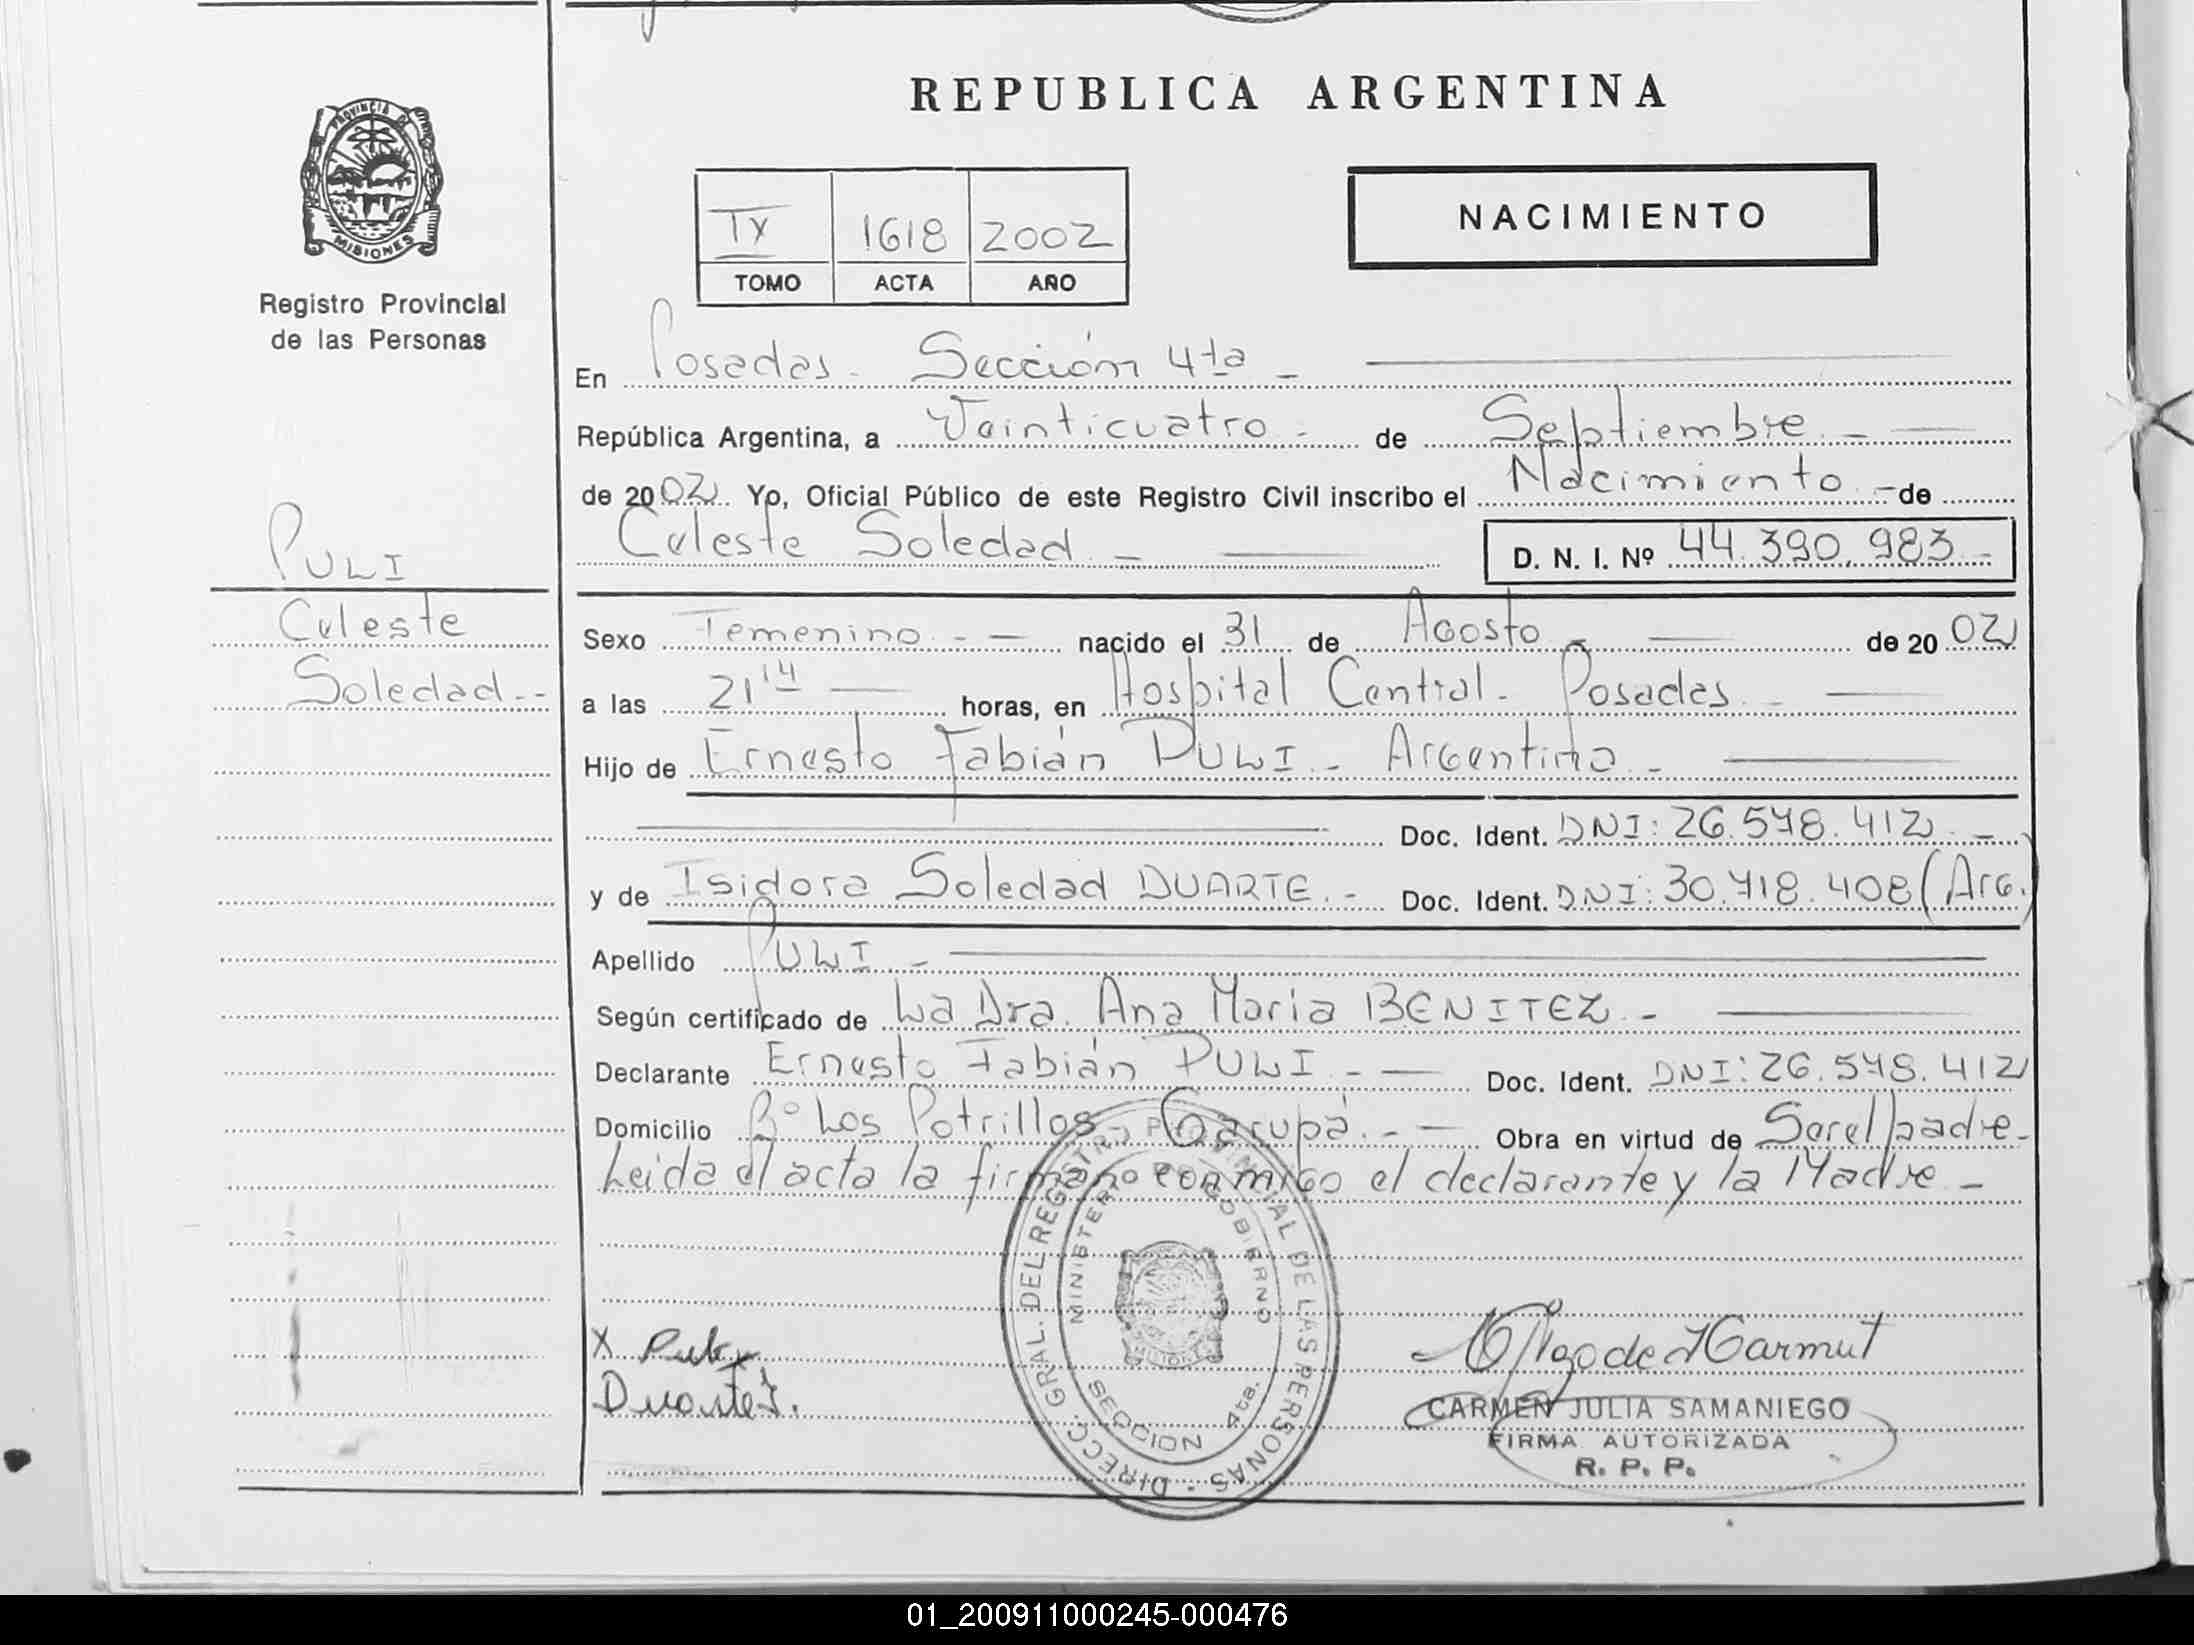 REPUBLICA ARGENTINA
PROVINCIA DE
MISIONES
Registro Provincial
de las Personas
IV 1618 2002
TOMO ACTA AÑO
NACIMIENTO
En Posadas - Sección 4ta -
República Argentina, a Veinticuatro - de Septiembre -
de 2002 Yo, Oficial Público de este Registro Civil inscribo el Nacimiento - de
Celeste Soledad - D. N. I. Nº 44.390.983 -
PULI
Celeste
Soledad --
Sexo Femenino - - nacido el 31 de Agosto - de 2002
a las 21 14 horas, en Hospital Central - Posadas -
Hijo de Ernesto Fabián PULI - Argentino -
Doc. Ident. DNI: 26.578.412 -
y de Isidora Soledad DUARTE. - Doc. Ident. DNI: 30.718.408 (Arg.)
Apellido PULI -
Según certificado de La Dra. Ana María BENITEZ -
Declarante Ernesto Fabián PULI - - Doc. Ident. DNI: 26.578.412
Domicilio Bº Los Potrillos - Garupá. - - Obra en virtud de Ser el padre -
Leida el acta la firmano conmigo el declarante y la Madre -
DIRECC. GRAL. DEL REGISTRO PROVINCIAL DE LAS PERSONAS
MINISTERIO DE GOBIERNO
SECCION 4ta.
X Puli
Duarte I.
CARMEN JULIA SAMANIEGO
FIRMA AUTORIZADA
R. P. P.
01_200911000245-000476